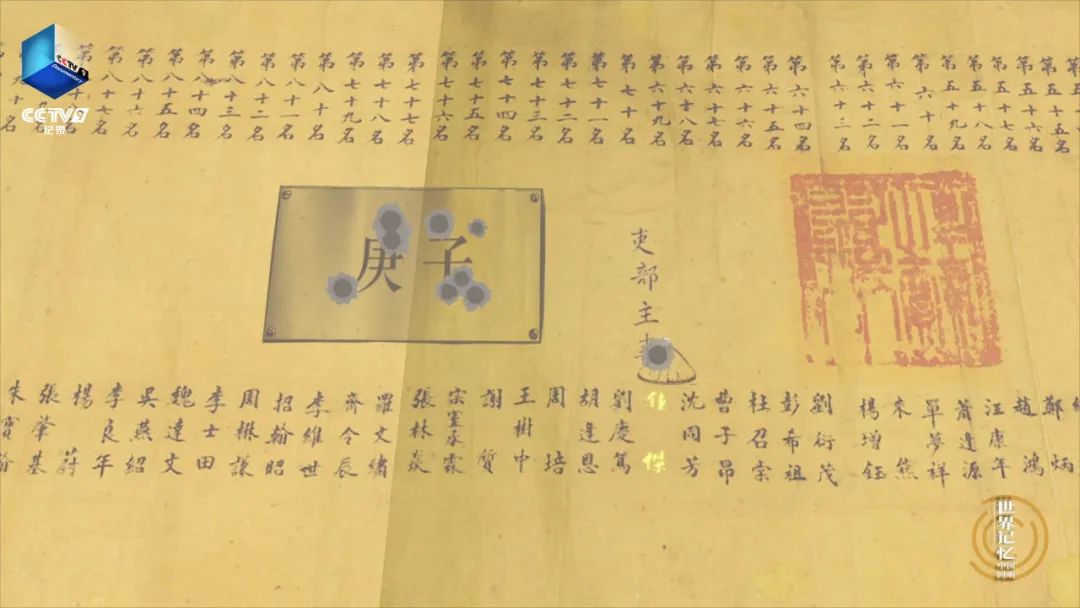 CCTV9 Documentary
CCTV9
纪录
第五十五名
第五十六名
第五十七名
第五十八名
第五十九名
第六十名
第六十一名
第六十二名
第六十三名
第六十四名
第六十五名
第六十六名
第六十七名
第六十八名
第六十九名
第七十名
第七十一名
第七十二名
第七十三名
第七十四名
第七十五名
第七十六名
第七十七名
第七十八名
第七十九名
第八十名
第八十一名
第八十二名
第八十三名
第八十四名
第八十五名
第八十六名
第八十七名
庚子
吏部主
鄭炳
趙鴻
汪康年
蕭逢源
單夢祥
朱熊
楊增鈺
劉衍茂
彭希祖
杜召棠
曹子昂
沈同芳
傑
劉慶篤
胡逢恩
周培
王樹中
謝質
宗室承霖
張林焱
羅文繡
齊令辰
李維世
招翰昭
周楙謙
李士田
魏達文
吳燕紹
李良年
楊蔚
張肇基
朱寶
世界记忆
中国回响